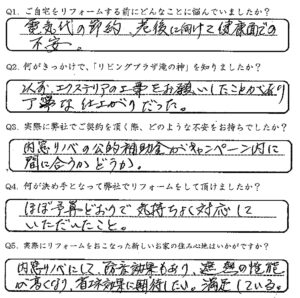 Q1. ご自宅をリフォームする前にどんなことに悩んでいましたか?
電気代の節約、老後に向けて健康面での
不安。
Q2. 何がきっかけで、「リビングプラザ滝の神」を知りましたか?
以前、エクステリアの工事をお願いしたことが有り
丁寧な仕上がりだった。
Q3. 実際に弊社でご契約を頂く際、どのような不安をお持ちでしたか?
内窓リノベの公的補助金がキャンペーン内に
間に合うかどうか。
Q4. 何が決め手となって弊社でリフォームをして頂けましたか?
ほぼ予算どおりで気持ちよく対応して
いただいたこと。
Q5. 実際にリフォームをおこなった新しいお家の住み心地はいかがですか?
内窓リノベにして、防音効果もあり、遮熱の性能
が高くなり、省エネ効果に期待したい。満足している。